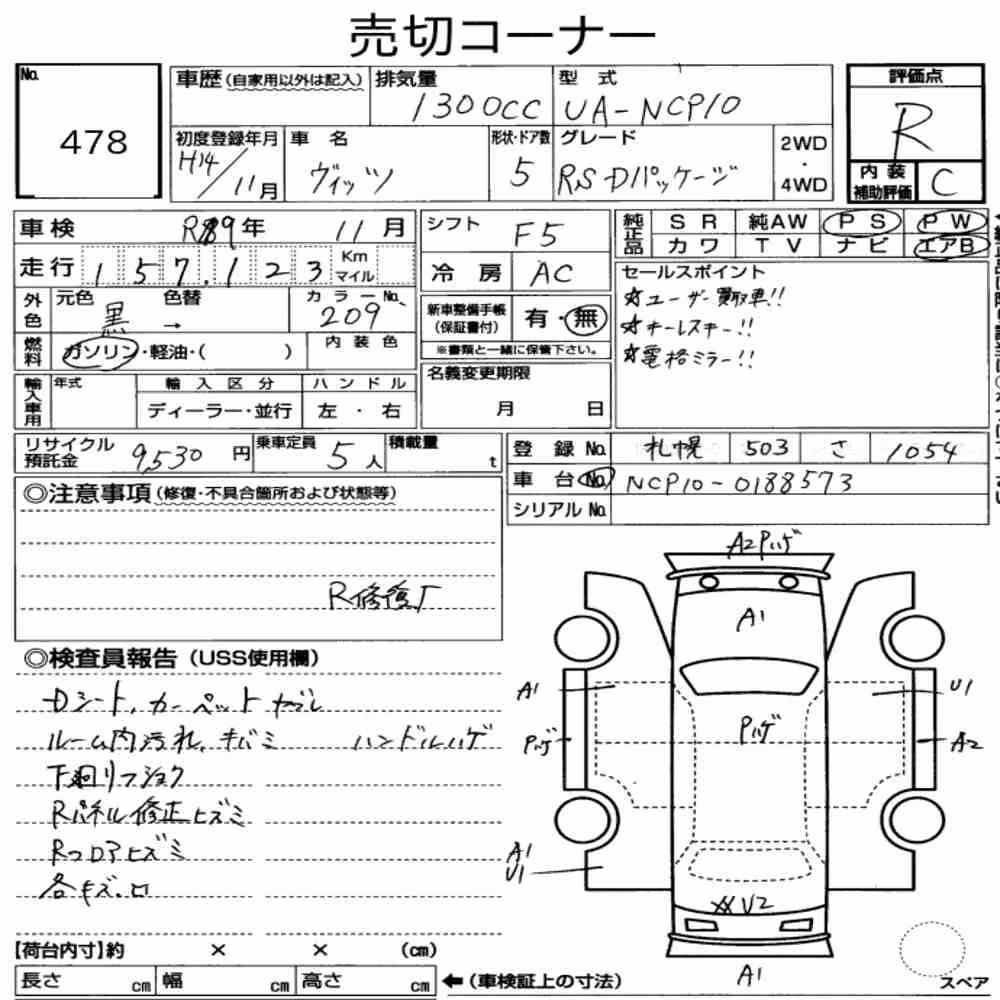 売切コーナー
No. 478
車歴（自家用以外は記入） 排気量 1300CC 型式 UA-NCP10
初度登録年月 H14/11月 車名 ヴィッツ 形状・ドア数 5 グレード RS-Dパッケージ 2WD・4WD
評価点 R
内装補助評価 C
車検 R 9年 11月
走行 157,123 Km マイル
外色 元色 黒 → 色替 カラーNo. 209
燃料 ガソリン・軽油・（ ） 内装色
輸入車用 年式 輸入区分 ディーラー・並行 ハンドル 左・右
シフト F5
冷房 AC
新車整備手帳（保証書付） 有・無
※書類と一緒に保管下さい。
名義変更期限 月 日
純正品 SR 純AW PS PW
カワ TV ナビ エアB
セールスポイント
☆ユーザー買取車!!
☆キーレスキー!!
☆電格ミラー!!
リサイクル預託金 9530円 乗車定員 5人 積載量 t
登録No. 札幌 503 さ 1054
車台No. NCP10-0188573
シリアルNo.
◎注意事項（修復・不具合箇所および状態等）
R修復
◎検査員報告（USS使用欄）
Dシート、カーペットヤブレ
ルーム内汚れ、キバミ ハンドルハゲ
下廻リフショク
Rパネル修正ヒズミ
Rフロアヒズミ
各キズ、凹
A2 Pハゲ
A1
A1
U1
Pハゲ
Pハゲ
A2
A1
U1
XX U2
A1
スペア
【荷台内寸】約 × × （cm）
長さ cm 幅 cm 高さ cm ←（車検証上の寸法）